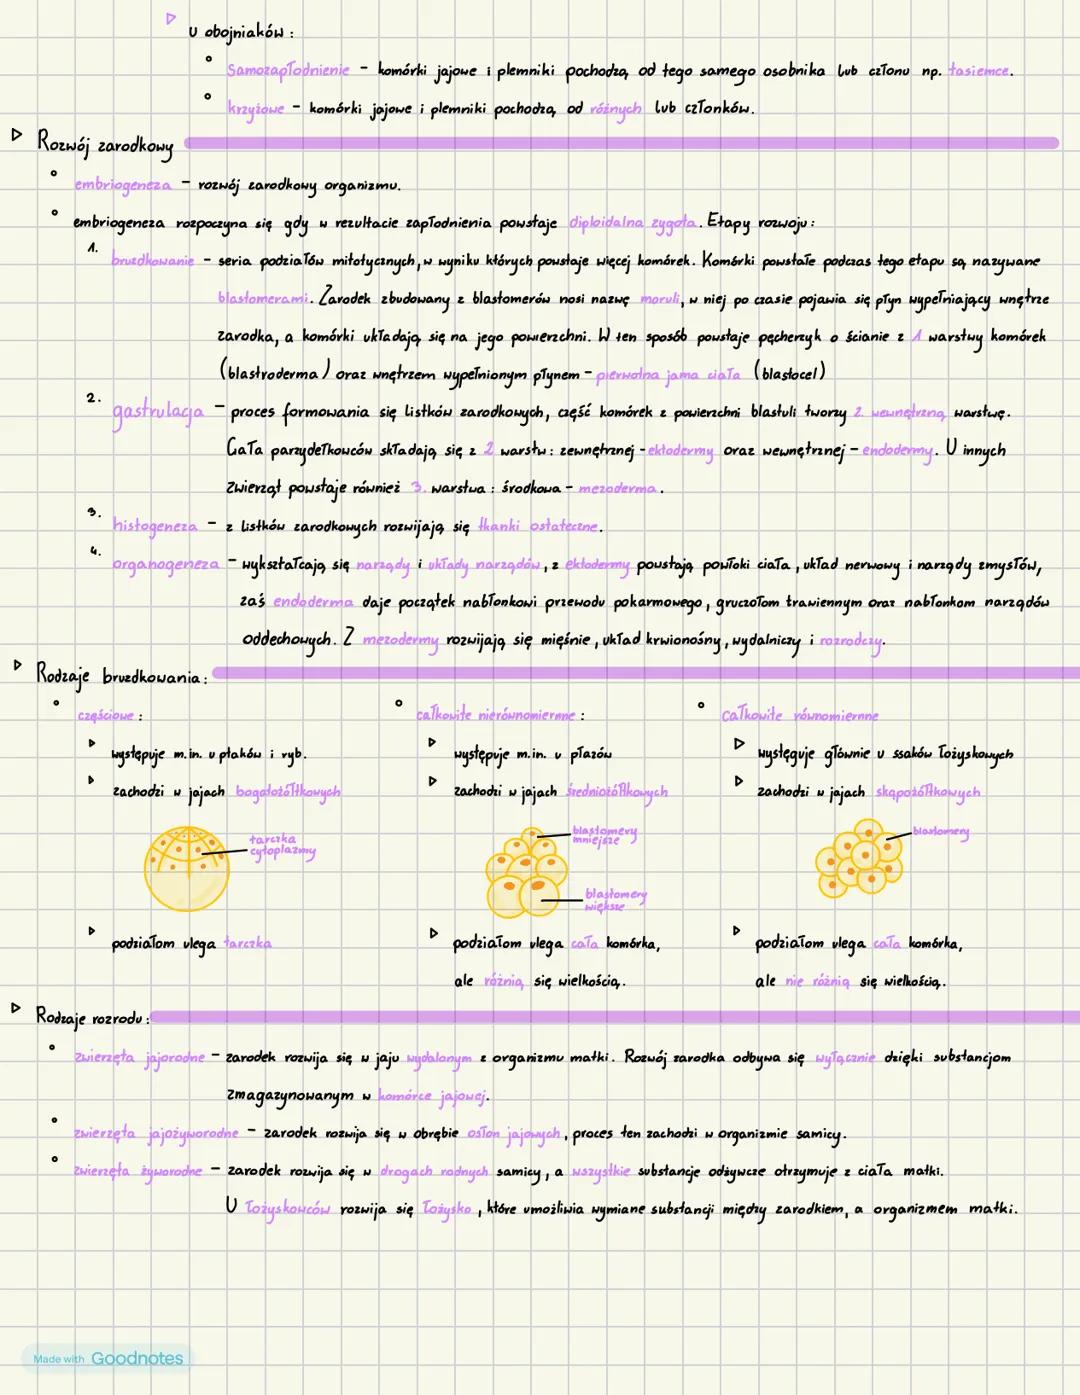 u obojniaków :
Samozapłodnienie – komórki jajowe i plemniki pochodzą od tego samego osobnika lub członu np. tasiemce.
krzyżowe – komórki jajowe i plemniki pochodzą od różnych lub członków.
Rozwój zarodkowy
embriogeneza – rozwój zarodkowy organizmu.
embriogeneza rozpoczyna się gdy w rezultacie zapłodnienia powstaje diploidalna zygota. Etapy rozwoju :
1. bruzdkowanie – seria podziałów mitotycznych, w wyniku których powstaje więcej komórek. Komórki powstałe podczas tego etapu są nazywane
blastomerami. Zarodek zbudowany z blastomerów nosi nazwę moruli, w niej po czasie pojawia się płyn wypełniający wnętrze
zarodka, a komórki układają się na jego powierzchni. W ten sposób powstaje pęcherzyk o ścianie z 1 warstwy komórek
(blastroderma) oraz wnętrzem wypełnionym płynem – pierwotna jama ciała (blastocel)
2. gastrulacja – proces formowania się listków zarodkowych, część komórek z powierzchni blastuli tworzy 2. wewnętrzną warstwę.
Ciała parzydełkowców składają się z 2 warstw : zewnętrznej – ektodermy oraz wewnętrznej – endodermy. U innych
zwierząt powstaje również 3. warstwa : środkowa – mezoderma.
3. histogeneza – z listków zarodkowych rozwijają się tkanki ostateczne.
4. organogeneza – wykształcają się narządy i układy narządów, z ektodermy powstają powłoki ciała, układ nerwowy i narządy zmysłów,
zaś endoderma daje początek nabłonkowi przewodu pokarmowego, gruczołom trawiennym oraz nabłonkom narządów
oddechowych. Z mezodermy rozwijają się mięśnie, układ krwionośny, wydalniczy i rozrodczy.
Rodzaje bruzdkowania :
częściowe :
występuje m.in. u ptaków i ryb.
zachodzi w jajach bogatożółtkowych
tarczka
cytoplazmy
podziałom ulega tarczka
całkowite nierównomierne :
występuje m.in. u płazów
zachodzi w jajach średniożółtkowych
blastomery
mniejsze
blastomery
większe
podziałom ulega cała komórka,
ale różnią się wielkością.
całkowite równomierne
występuje głównie u ssaków łożyskowych
zachodzi w jajach skąpożółtkowych
blastomery
podziałom ulega cała komórka,
ale nie różnią się wielkością.
Rodzaje rozrodu :
zwierzęta jajorodne – zarodek rozwija się w jaju wydalonym z organizmu matki. Rozwój zarodka odbywa się wyłącznie dzięki substancjom
zmagazynowanym w komórce jajowej.
zwierzęta jajożyworodne – zarodek rozwija się w obrębie osłon jajowych, proces ten zachodzi w organizmie samicy.
zwierzęta żyworodne – zarodek rozwija się w drogach rodnych samicy, a wszystkie substancje odżywcze otrzymuje z ciała matki.
U łożyskowców rozwija się łożysko, które umożliwia wymiane substancji między zarodkiem, a organizmem matki.
Made with Goodnotes